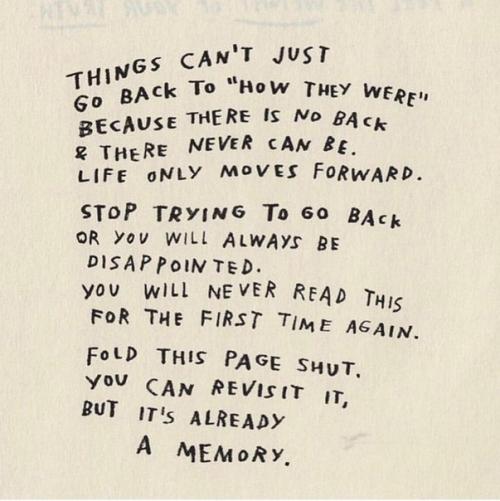 THINGS CAN'T JUST
GO BACK TO "HOW THEY WERE"
BECAUSE THERE IS NO BACK
& THERE NEVER CAN BE.
LIFE ONLY MOVES FORWARD.
STOP TRYING TO GO BACK
OR YOU WILL ALWAYS BE
DISAPPOINTED.
YOU WILL NEVER READ THIS
FOR THE FIRST TIME AGAIN.
FOLD THIS PAGE SHUT.
YOU CAN REVISIT IT,
BUT IT'S ALREADY
A MEMORY.